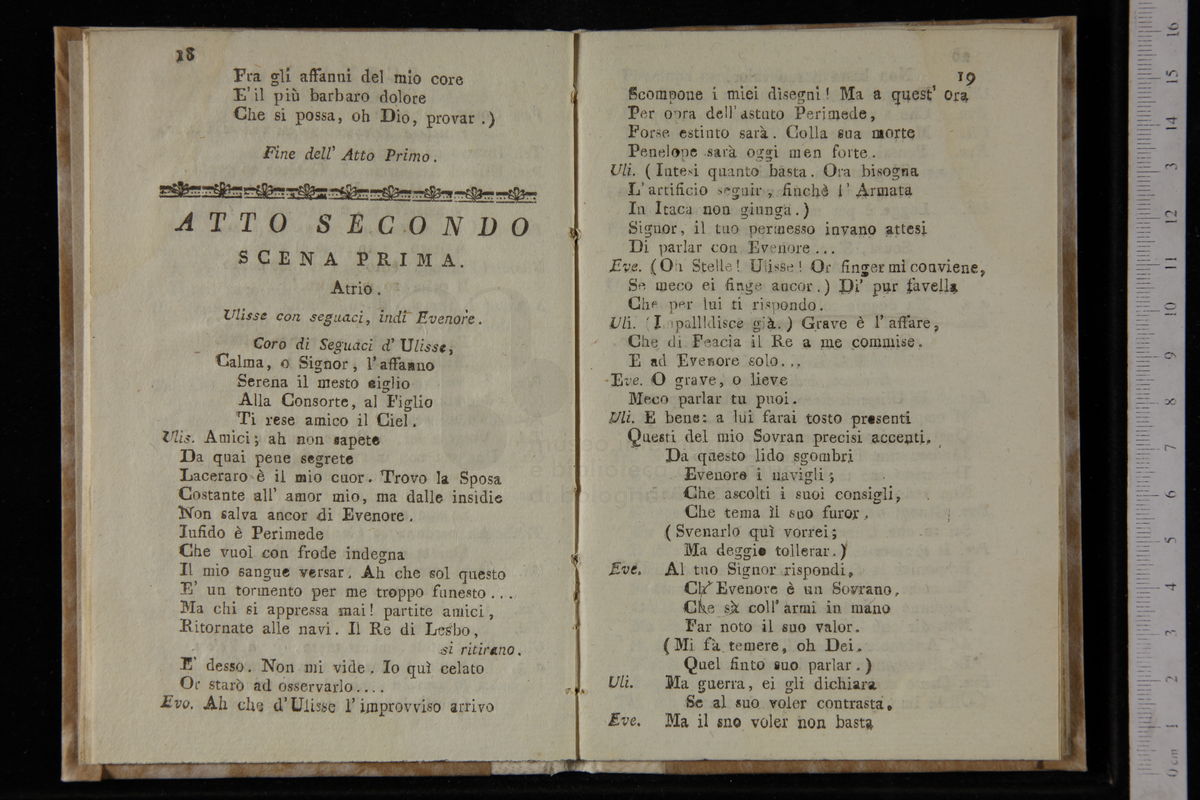 18
Fra gli affanni del mio core
E' il più barbaro dolore
Che si possa, oh Dio, provar.)
Fine dell' Atto Primo.
ATTO SECONDO
SCENA PRIMA.
Atrio.
Ulisse con seguaci, indi Evenore.
Coro di Seguaci d' Ulisse,
Calma, o Signor, l'affanno
Serena il mesto ciglio
Alla Consorte, al Figlio
Ti rese amico il Ciel.
Ulis. Amici; ah non sapete
Da quai pene segrete
Lacerato è il mio cuor. Trovo la Sposa
Costante all' amor mio, ma dalle insidie
Non salva ancor di Evenore.
Infido è Perimede
Che vuol con frode indegna
Il mio sangue versar. Ah che sol questo
E' un tormento per me troppo funesto...
Ma chi si appressa mai! partite amici,
Ritornate alle navi. Il Re di Lesbo,
si ritirano.
E' desso. Non mi vide. Io quì celato
Or starò ad osservarlo....
Evo. Ah che d'Ulisse l'improvviso arrivo
19
Scompone i miei disegni! Ma a quest' ora
Per opra dell'astuto Perimede,
Forse estinto sarà. Colla sua morte
Penelope sarà oggi men forte.
Uli. (Intesi quanto basta. Ora bisogna
L'artificio seguir, finchè l'Armata
In Itaca non giunga.)
Signor, il tuo permesso invano attesi
Di parlar con Evenore...
Eve. (Oh Stelle! Ulisse! Or finger mi conviene,
Se meco ei finge ancor.) Di' pur favella
Che per lui ti rispondo.
Uli. (Impallidisce già.) Grave è l'affare,
Che di Feacia il Re a me commise.
E ad Evenore solo...
Eve. O grave, o lieve
Meco parlar tu puoi.
Uli. E bene: a lui farai tosto presenti
Questi del mio Sovran precisi accenti.
Da questo lido sgombri
Evenore i navigli;
Che ascolti i suoi consigli,
Che tema il suo furor.
(Svenarlo quì vorrei;
Ma deggio tollerar.)
Eve. Al tuo Signor rispondi,
Ch' Evenore è un Sovrano,
Che sà coll' armi in mano
Far noto il suo valor.
(Mi fà temere, oh Dei,
Quel finto suo parlar.)
Uli. Ma guerra, ei gli dichiara
Se al suo voler contrasta,
Eve. Ma il sno voler non basta